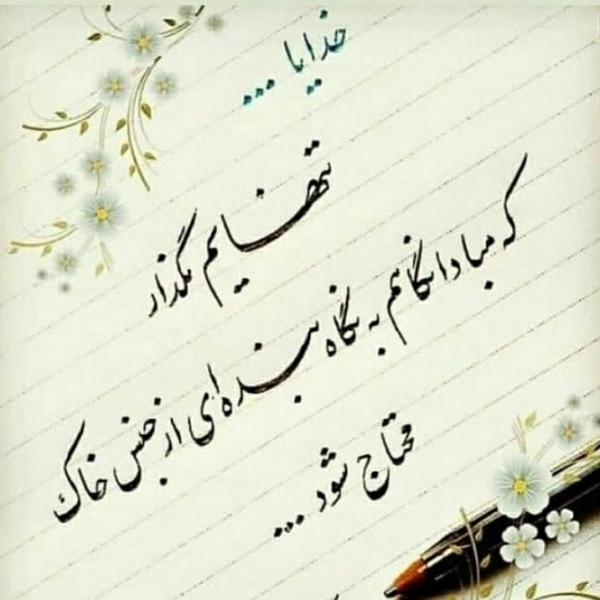 خدایا ...
تنهایم مگذار
که مبادا نگاهم به نگاه بنده ای از جنس خاک
محتاج شود ...